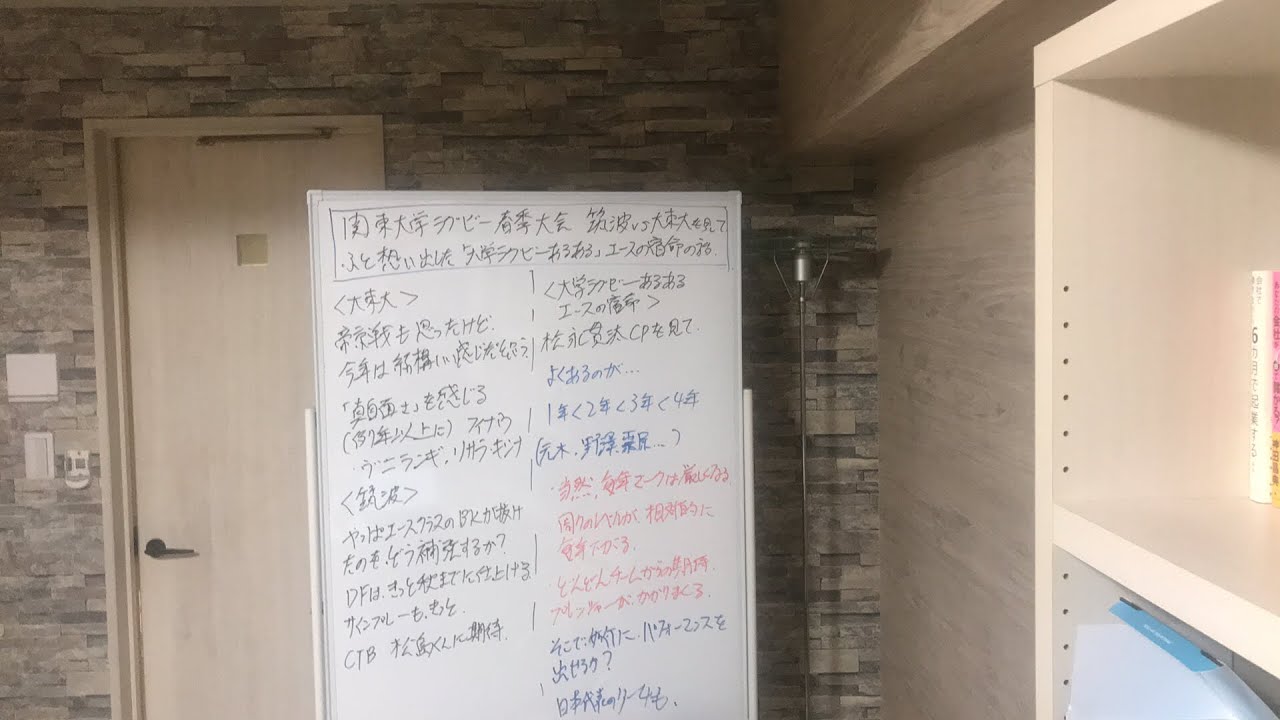 関東大学ラグビー春季大会 筑波vs大東大を見て
ふと想い出した「大学ラグビーあるある」エースの宿命の話.
<大東大>
帝京戦も思ったけど.
今年は結構いい感じだと思う
「真面目さ」を感じる
(例年以上に) フィナウ
・ヴニランギ・リサラ・キナ
<筑波>
やっぱエースクラスのBKが抜け
たのを.どう補強するか?
DFは.きっと秋までに仕上げる
サインプレーも.もっと.
CTB 松島くんに期待.
<大学ラグビーあるある
エースの宿命>
松永貫汰CPを見て.
よくあるのが…
1年<2年<3年<4年
(元木.野澤.栗原…)
・当然.毎年マークは厳しくなる
周りのレベルが、相対的に
毎年下がる.
・どんどんチームからの期待.
プレッシャーが.かかりまくる.
そこで.如何に.パフォーマンスを
出せるか?
日本代表のリーチも.
会社で
6カ月で起業する